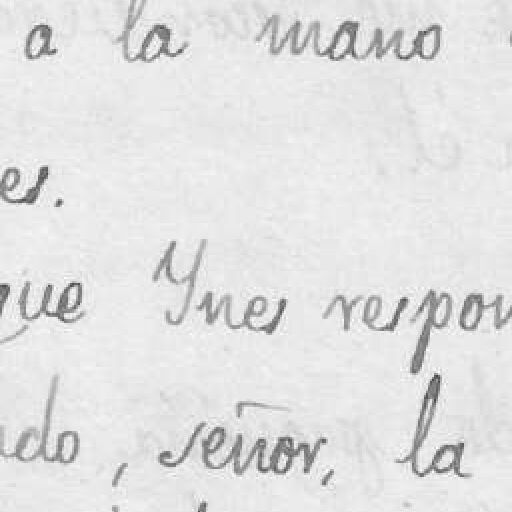 a la mano
es.
que Ynes respon
ado, señor, la